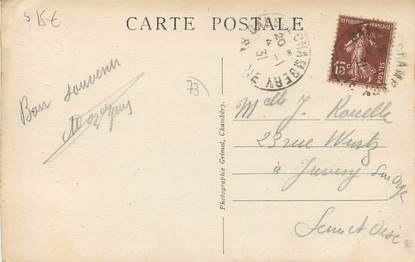 5 15€
CARTE POSTALE
CHAMBERY
20 - 1
31
RÉPUBLIQUE FRANÇAISE
15c
POSTES
73
Bon souvenir
Photographie Grimal, Chambéry.
Melle J. Rouelle
23 rue Wurtz
à Juvisy Sur Orge
Seine et Oise